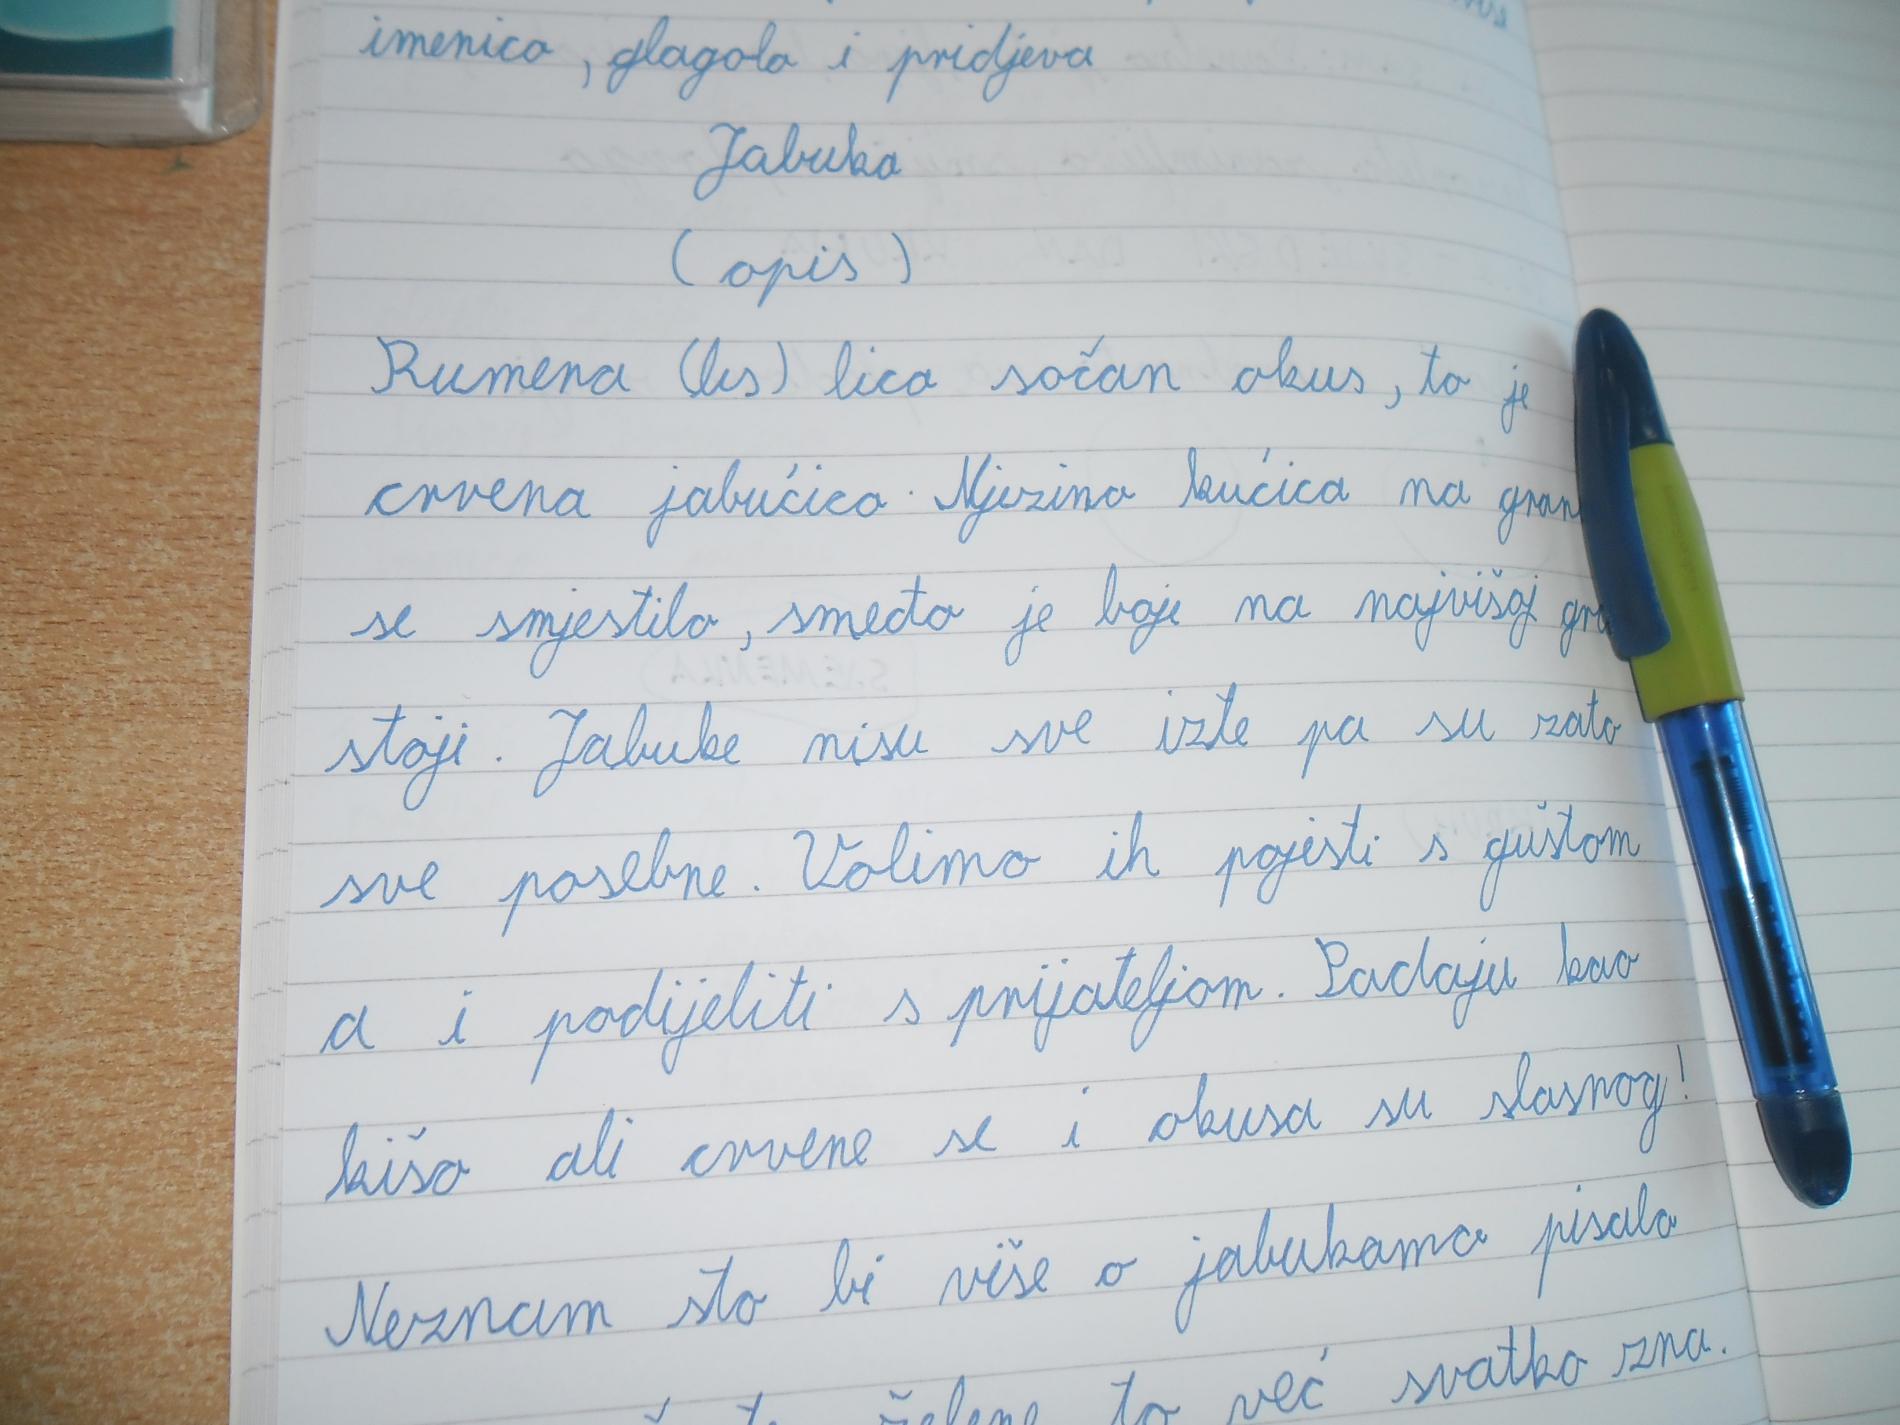 imenica, glagola i pridjeva
Jabuka
(opis)
Rumena (ks) lica sočan okus, to je
crvena jabućica. Njezina kućica na
se smjestila, smeđa je boje na najvišoj
stoji. Jabuke nisu sve izte pa su zato
sve posebne. Volimo ih pojesti s guštom
a i podijeliti s prijateljom. Padaju kao
kiša ali crvene se i okusa su slasnog!
Neznam sto bi više o jabukama pisala
zelene to već svatko zna.